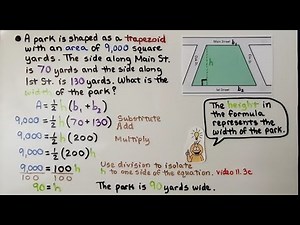 A park is shaped as a trapezoid
with an area of 9,000 square
yards. The side along Main St.
is 70 yards and the side along
1st St. is 130 yards. What is the
width of the park?
Main Street b₂
h
1st Street b₁
A = 1/2 h (b₁ + b₂)
9,000 = 1/2 h (70 + 130) Substitute
Add
9,000 = 1/2 h (200) Multiply
9,000 = 1/2 h (200)
9,000 = 100 h
100 100
Use division to isolate
h to one side of the equation. video 11.3c
90 = h The park is 90 yards wide.
The height in
the formula
represents the
width of the park.